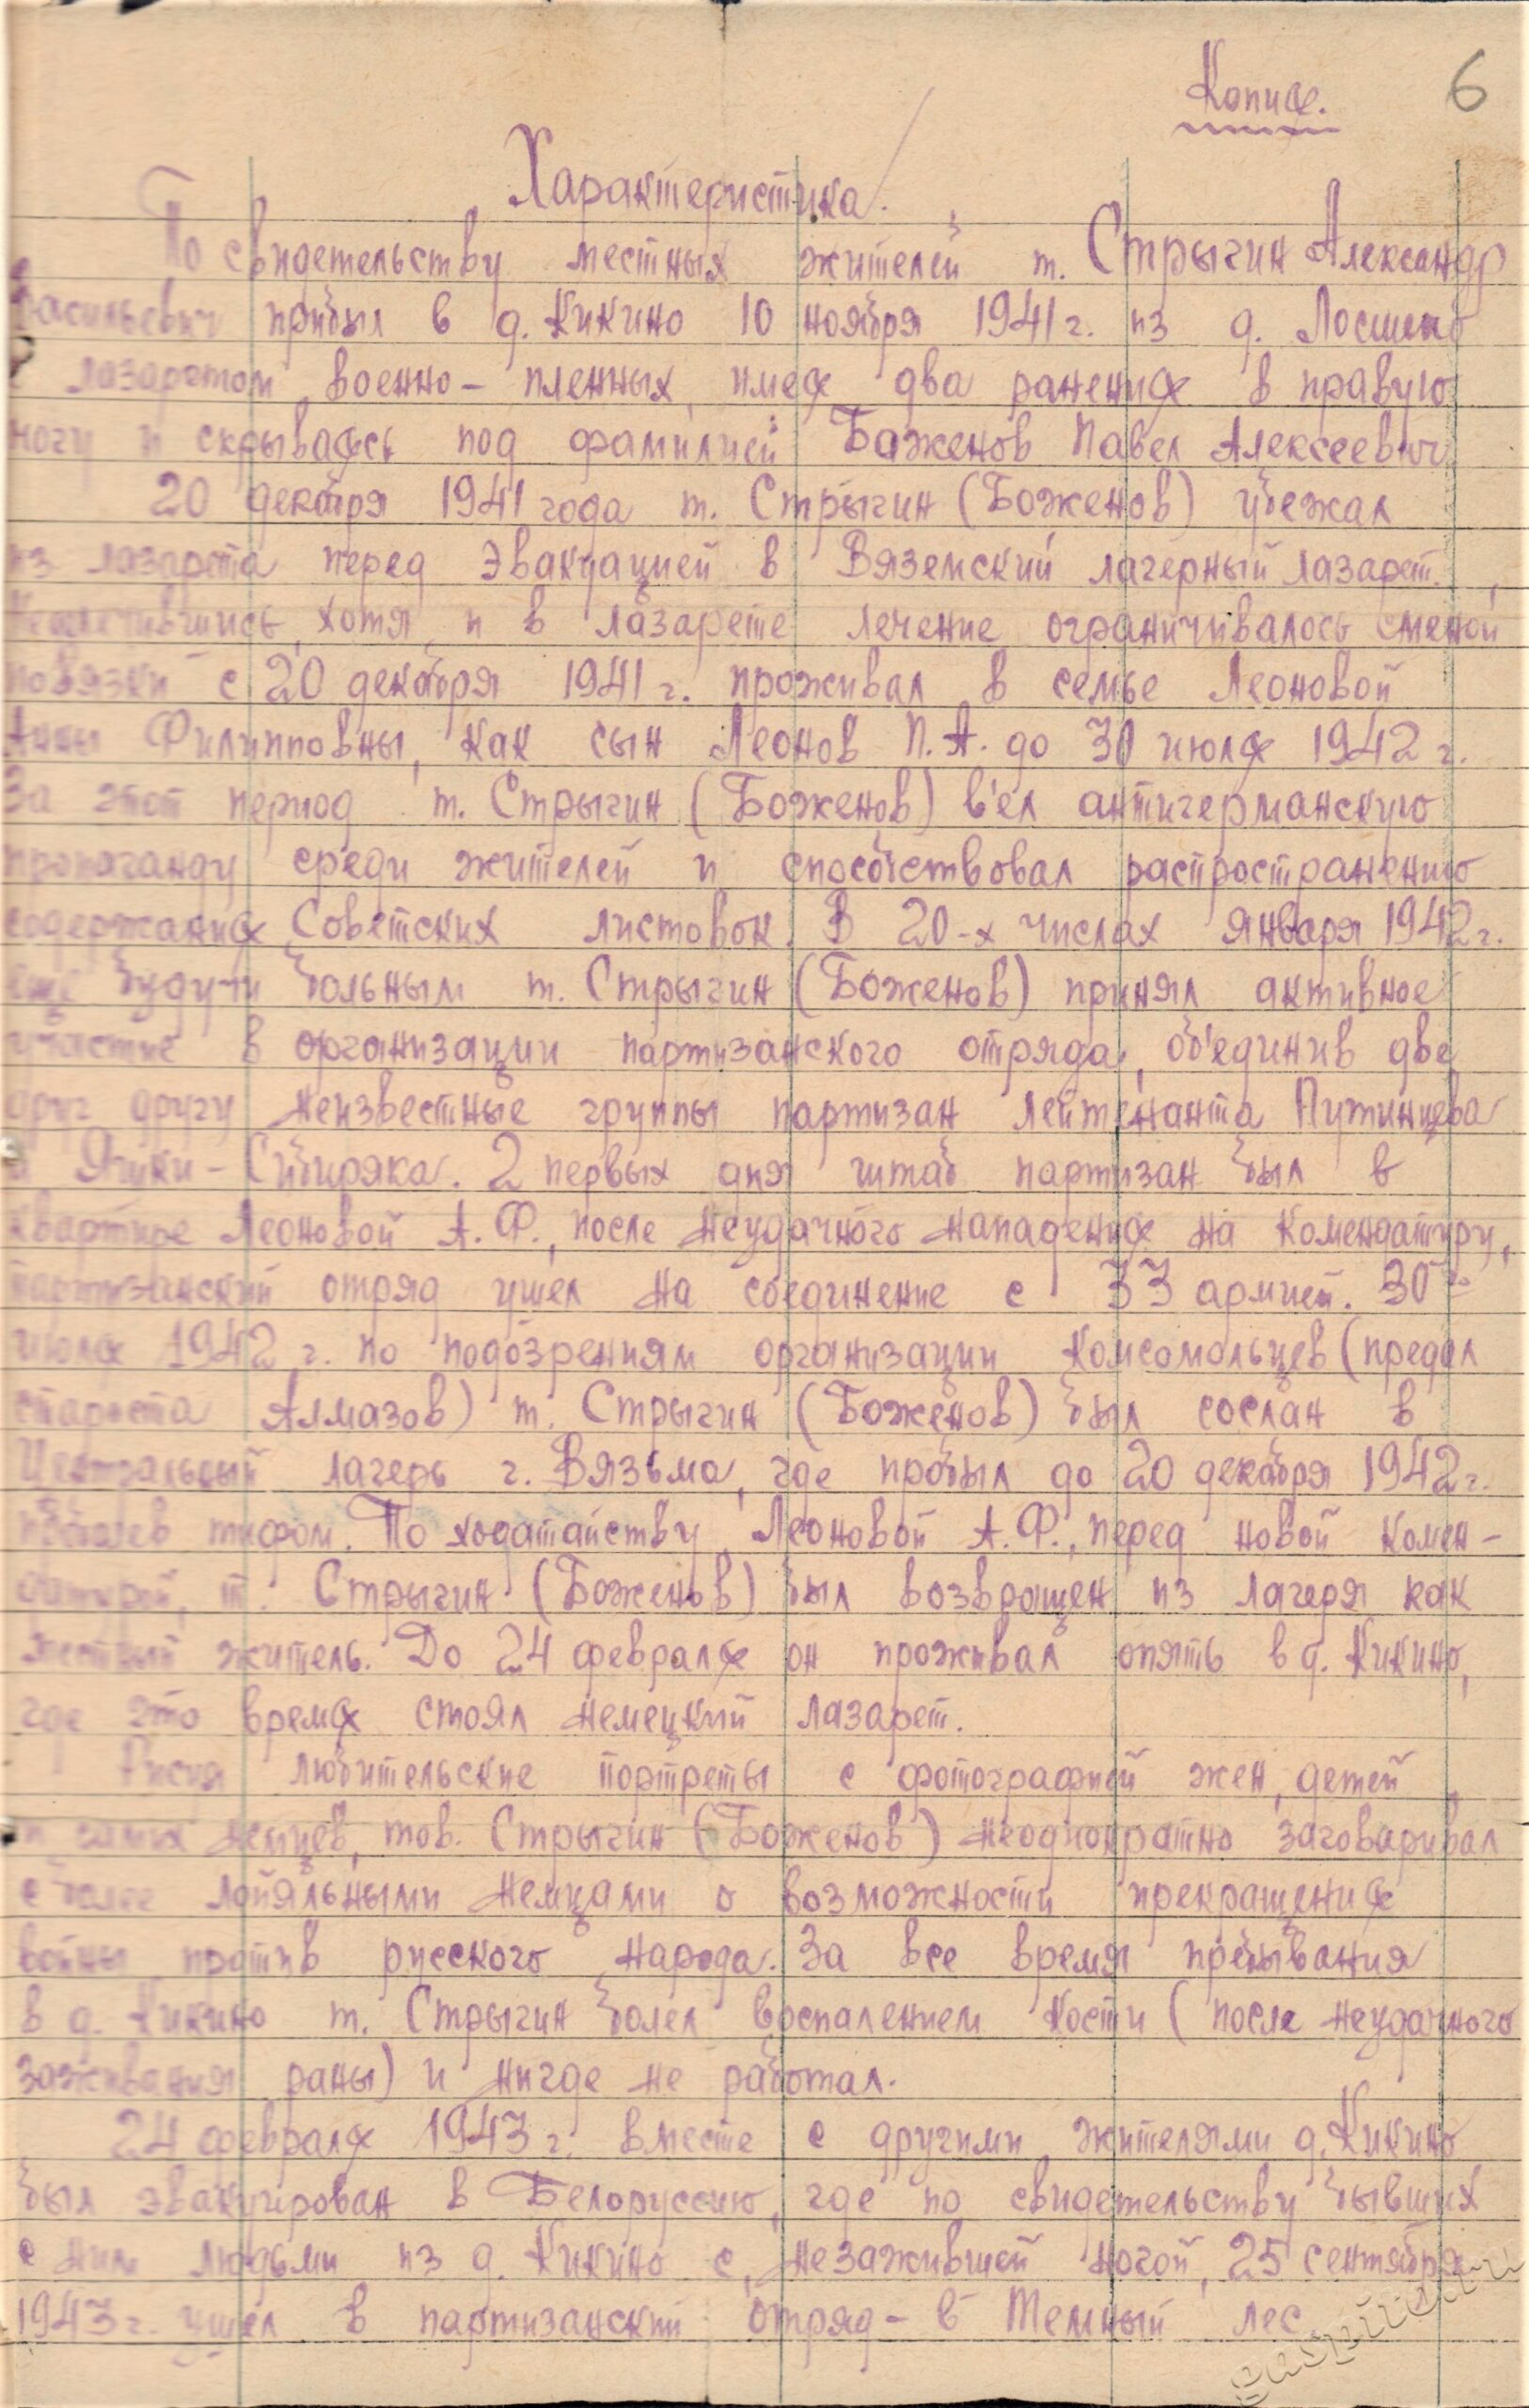 Копия.
6
Характеристика.
По свидетельству местных жителей т. Стрыгин Александр
Васильевич прибыл в д. Кикино 10 ноября 1941 г. из д. Лосмено
с лазаретом военно-пленных, имея два ранения в правую
ногу и скрываясь под фамилией Баженов Павел Алексеевич
20 декабря 1941 года т. Стрыгин (Боженов) убежал
из лазарета перед эвакуацией в Вяземский лагерный лазарет.
хотя и в лазарете лечение ограничивалось сменой
повязки с 20 декабря 1941 г. проживал в семье Леоновой
Анны Филипповны, как сын Леонов П. А. до 30 июля 1942 г.
За этот период т. Стрыгин (Боженов) в'ел антигерманскую
пропаганду среди жителей и способствовал распространению
содержания Советских листовок. В 20-х числах января 1942 г.
еще будучи больным т. Стрыгин (Боженов) принял активное
участие в организации партизанского отряда, об'единив две
друг другу неизвестные группы партизан лейтенанта Путинцева
и Яшки-Сибиряка. 2 первых дня штаб партизан был в
квартире Леоновой А. Ф., после неудачного нападения на комендатуру,
партизанский отряд ушел на соединение с 33 армией. 30го
июля 1942 г. по подозрениям организации Комсомольцев (предал
староста Алмазов) т. Стрыгин (Боженов) был сослан в
Центральный лагерь г. Вязьма, где пробыл до 20 декабря 1942 г.
тифом. По ходатайству Леоновой А. Ф., перед новой комен-
датурой, т. Стрыгин (Боженов) был возвращен из лагеря как
местный житель. До 24 февраля он проживал опять в д. Кикино,
где это время стоял немецкий лазарет.
Рисуя любительские портреты с фотографией жен, детей
и самих немцев, тов. Стрыгин (Боженов) неоднократно заговаривал
с более лойяльными немцами о возможности прекращения
войны против русского народа. За все время пребывания
в д. Кикино т. Стрыгин болел воспалением кости (после неудачного
заживания раны) и нигде не работал.
24 февраля 1943 г. вместе с другими жителями д. Кикино
был эвакуирован в Белоруссию, где по свидетельству бывших
с ним людьми из д. Кикино с незажившей ногой, 25 сентября
1943 г. ушел в партизанский отряд - в Темный лес